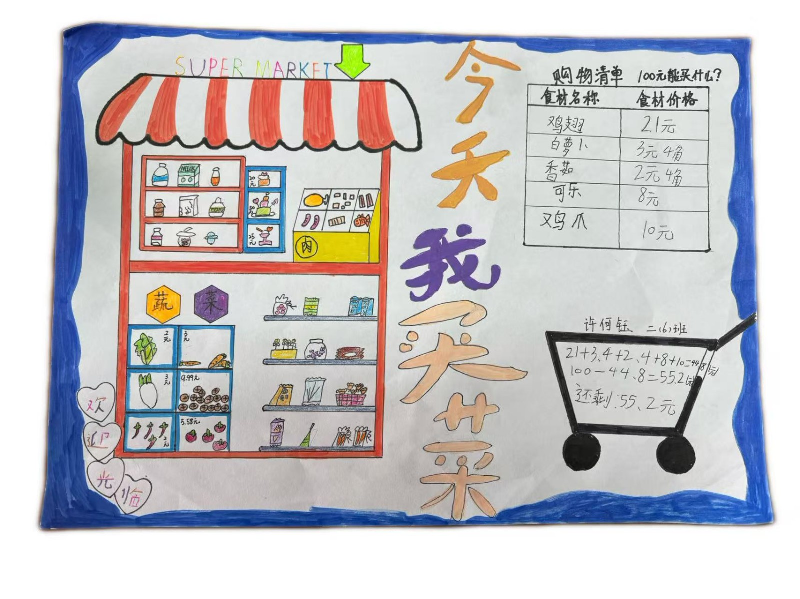 SUPER MARKET
今天我买菜
购物清单 100元能买什么?
食材名称 食材价格
鸡翅 21元
白萝卜 3元4角
香菇 2元4角
可乐 8元
鸡爪 10元
肉
蔬 菜
2元
3元
3.99元
2元
5.58元
欢迎光临
许何钰、二(6)班
21+3.4+2.4+8+10=44.8(元)
100-44.8=55.2(元)
还剩:55.2元